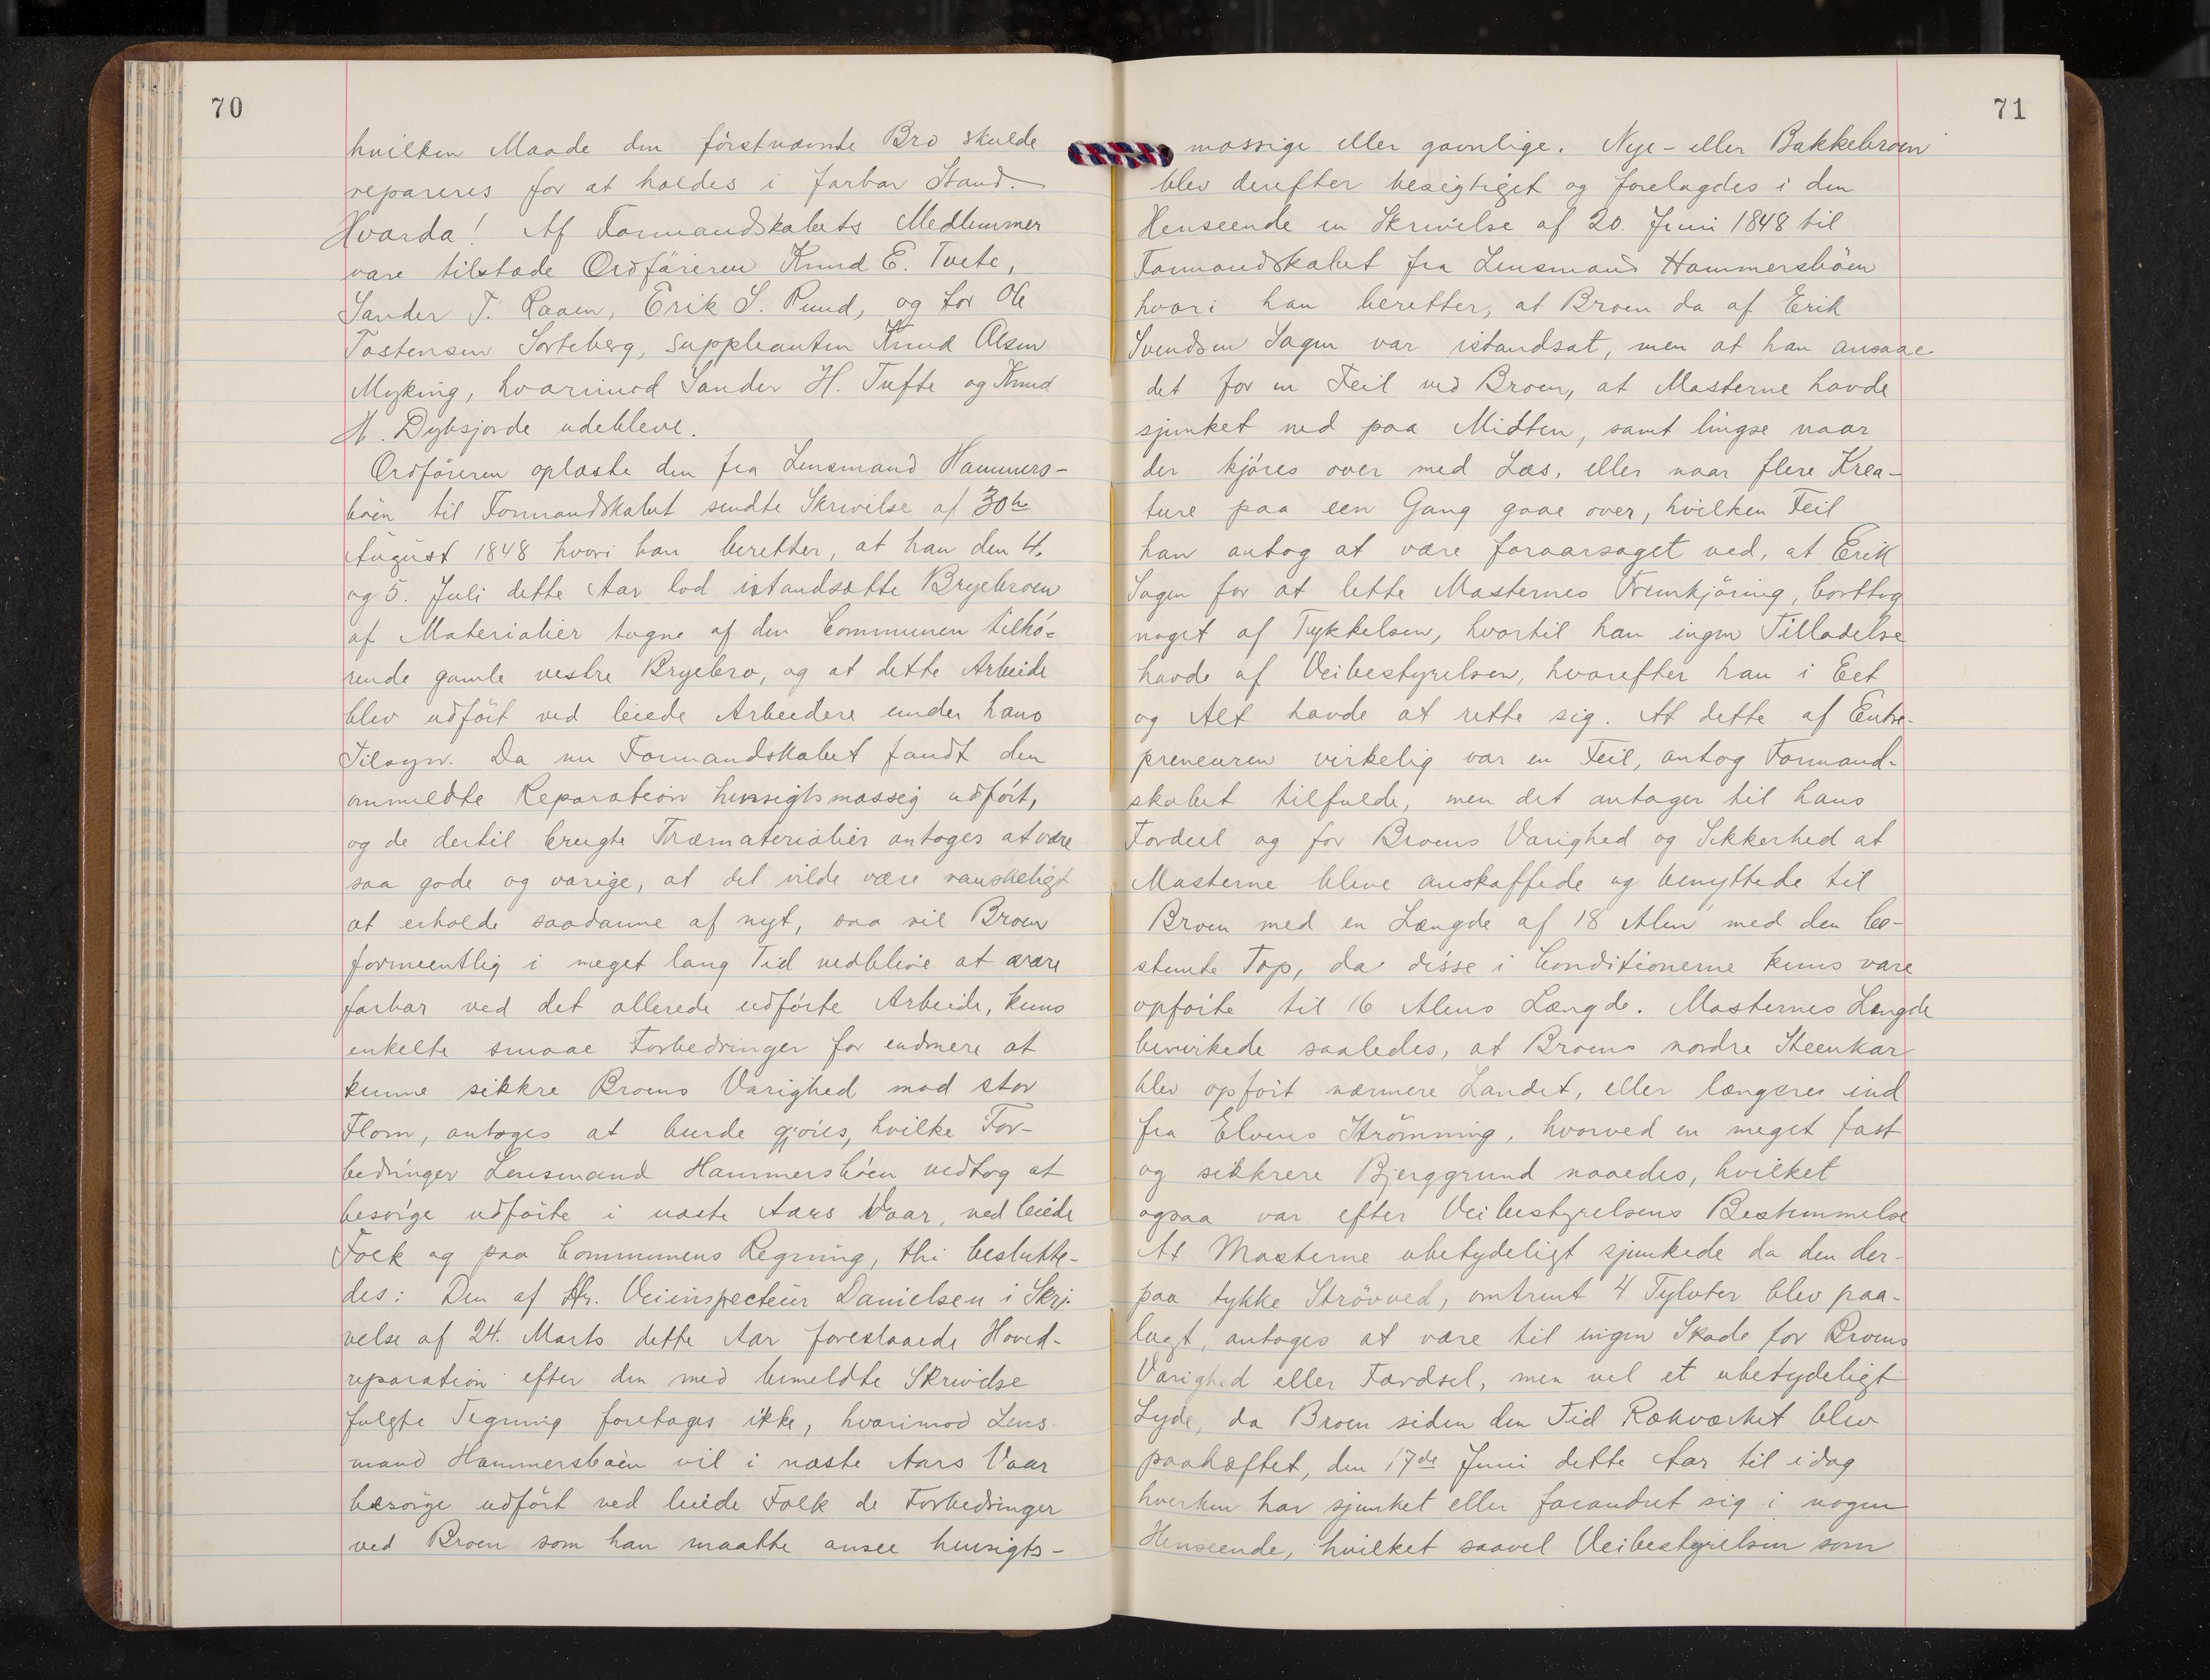 70
hvilken Maade den førstnævnte Bro skulde
repareres for at holdes i farbar Stand.
Hvorda! Af Formandskabets Medlemmer
vare tilstæde Ordføreren Knud E. Tvete,
Sander T. Raaen, Erik S. Rund, og for Ole
Tostensen Sorteberg, Suppleanten Knud Olsen
Myking, hvorimod Sander H. Tufte og Knud
N. Dyksjorde udebleve.
Ordføreren oplæste den fra Lensmand Hammers-
bøen til Formandskabet sendte Skrivelse af 30te
August 1848 hvori han beretter, at han den 4.
og 5. Juli dette Aar lod istandsætte Bryebroen
af Materialier tagne af den Communen tilhø-
rende gamle vestre Bryebro, og at dette Arbeide
blev udført ved leiede Arbeidere under hans
Tilsyn. Da nu Formandskabet fandt den
anmeldte Reparation hensigtsmæssig udført,
og de dertil brugte Træmaterialier antages at være
saa gode og varige, at det vilde være vanskeligt
at erholde saadanne af nyt, saa vil Broen
formeentlig i meget lang Tid vedblive at være
farbar ved det allerede udførte Arbeide, kuns
enkelte smaae Forbedringer for endmere at
kunne sikkre Broens Varighed mod stor
Flom, antages at burde gjøres, hvilke For-
bedringer Lensmand Hammersbøen vedtog at
besørge udførte i næste Aars Vaar, ved leiede
Folk og paa Communens Regning, thi beslutte-
des: Den af Hr. Veiinspecteur Danielsen i Skri-
velse af 24. Marts dette Aar foreslaaede Hoved-
reparation efter den med bemeldte Skrivelse
fulgte Tegning foretages ikke, hvorimod Lens-
mand Hammersbøen vil i næste Aars Vaar
besørge udført ved leiede Folk de Forbedringer
ved Broen som han maatte ansee hensigts-
71
mæssige eller gavnlige. Nye- eller Bakkebroen
blev derefter besigtiget og forelagdes i den
Henseende en Skrivelse af 20. Juni 1848 til
Formandskabet fra Lensmand Hammersbøen
hvori han beretter, at Broen da af Erik
Svendsen Sagen var istandsat, men at han ansaae
det for en Feil ved Broen, at Masterne havde
sjunket ned paa Midten, samt lingse naar
der kjøres over med Læs, eller naar flere Krea-
ture paa een Gang gaae over, hvilken Feil
han antog at være foraarsaget ved, at Erik
Sagen for at lette Masternes Fremkjøring, borttog
noget af Tykkelsen, hvortil han ingen Tilladelse
havde af Veibestyrelsen, hvorefter han i Eet
og Alt havde at rette sig. At dette af Entre-
preneuren virkelig var en Feil, antog Formand-
skabet tilfulde, men det antager til hans
Fordeel og for Broens Varighed og Sikkerhed at
Masterne bleve anskaffede og benyttede til
Broen med en Længde af 18 Alen med den be-
stemte Top, da disse i Conditionerne kuns vare
opførte til 16 Alens Længde. Masternes Længde
bevirkede saaledes, at Broens nordre Steenkar
blev opført nærmere Landet, eller længere ind
fra Elvens Strømning, hvorved en meget fast
og sikkrere Bjerggrund naaedes, hvilket
ogsaa var efter Veibestyrelsens Bestemmelse
At Masterne ubetydeligt sjunkede da den der-
paa tykke Strøvved, omtrent 4 Tylvter blev paa-
lagt, antages at være til ingen Skade for Broens
Varighed eller Færdsel, men vel et ubetydeligt
Lyde, da Broen siden den Tid Rækværket blev
paahæftet, den 17de Juni dette Aar til idag
hverken har sjunket eller forandret sig i nogen
Henseende, hvilket saavel Veibestyrelsen som